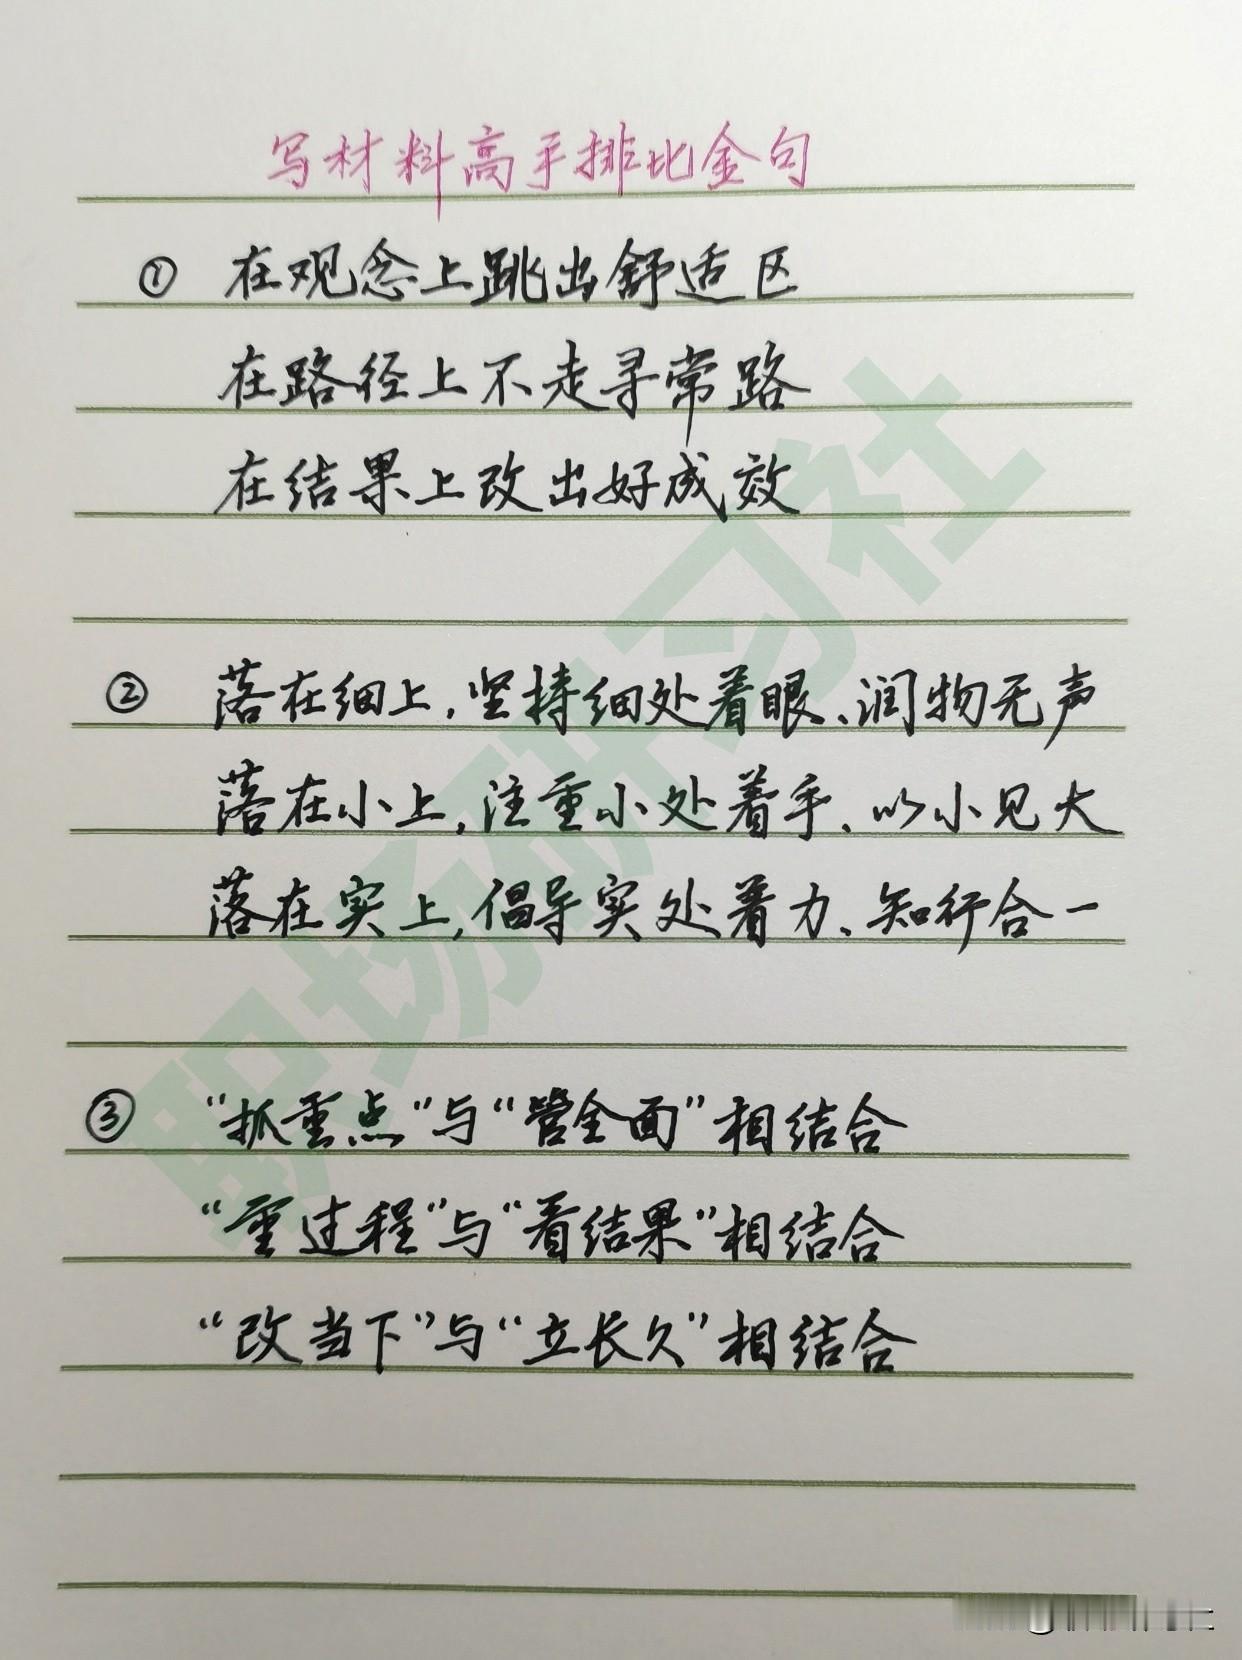 写材料高手排比金句
① 在观念上跳出舒适区
在路径上不走寻常路
在结果上改出好成效
② 落在细上,坚持细处着眼、润物无声
落在小上,注重小处着手、以小见大
落在实上,倡导实处着力、知行合一
③ “抓重点”与“管全面”相结合
“重过程”与“看结果”相结合
“改当下”与“立长久”相结合
职场研习社